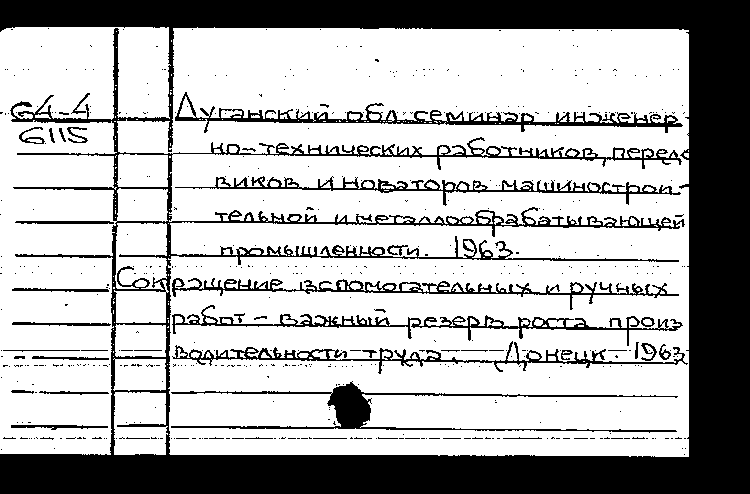 64-4
6115
Луганский обл. семинар инженер-
но-технических работников, передо
виков и новаторов машинострои-
тельной и металлообрабатывающей
промышленности. 1963.
Сокращение вспомогательных и ручных
работ - важный резерв роста произ
водительности труда. Донецк. 1963